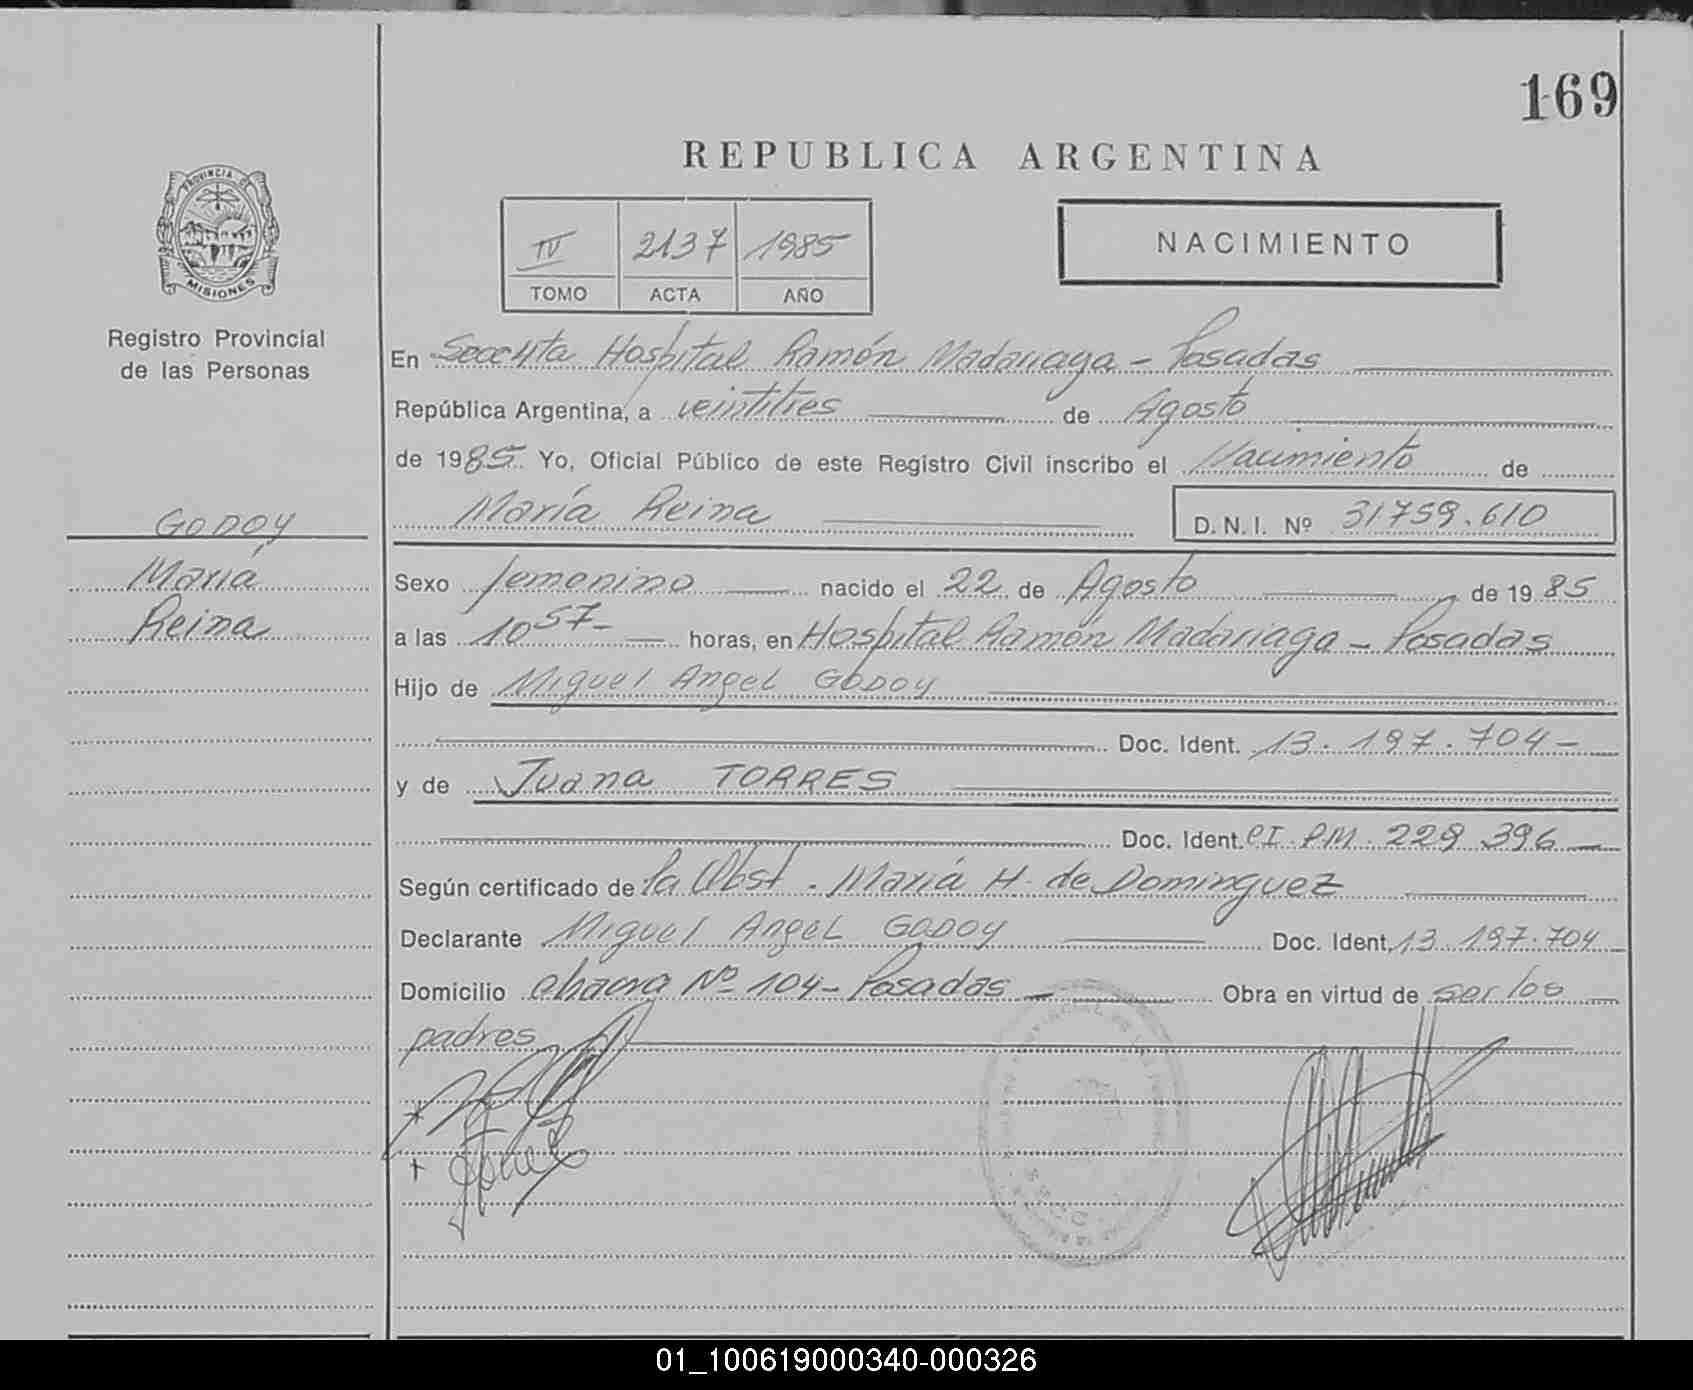 169
REPUBLICA ARGENTINA
PROVINCIA DE
MISIONES
Registro Provincial
de las Personas
IV 2137 1985
TOMO ACTA AÑO
NACIMIENTO
En Hospital Ramón Madariaga - Posadas
República Argentina, a veintitres de Agosto
de 1985. Yo, Oficial Público de este Registro Civil inscribo el Nacimiento de
María Reina D.N.I. Nº 31759.610
GODOY
María
Reina
Sexo femenino nacido el 22 de Agosto de 1985
a las 10 57- horas, en Hospital Ramón Madariaga - Posadas
Hijo de Miguel Angel GODOY
Doc. Ident. 13.197.704-
y de Juana TORRES
Doc. Ident. CI.PM. 229 396
Según certificado de la Obst. María H. de Dominguez
Declarante Miguel Angel GODOY Doc. Ident. 13 197.704
Domicilio chacra Nº 104- Posadas Obra en virtud de ser los
padres
01_100619000340-000326